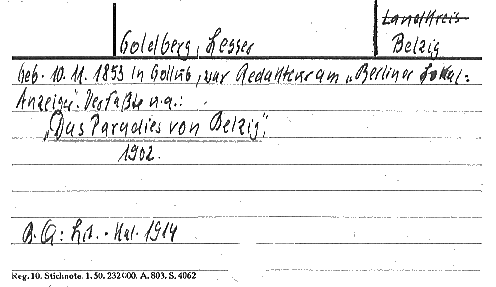 Landkreis
Goldberg, Lesser Belzig
Geb. 10. 11. 1853 in Gollub, war Redakteur am „Berliner Lokal-
Anzeiger". Verfaßte u. a.:
„Das Paradies von Belzig",
1902.
B. Q: Lit. - Kal. 1914
Reg. 10. Sticknote. 1. 50. 232000. A. 803. S. 4062